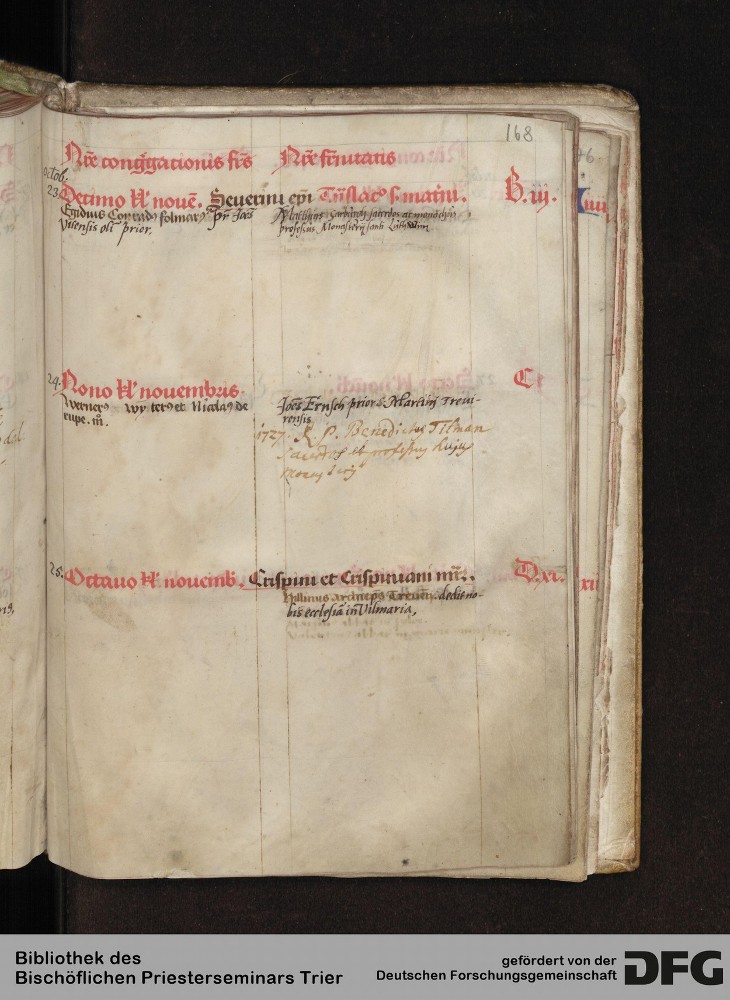 168
Nr̄e congg̃acionis frīs Nr̄e frñitatis
octob:
23. Decimo kl' nouē. Seuerini ep̄i. Trāslac̄o s. matini. B. iij.
Egidius Conrad9 folmar9 pr̄r Joēs
Vitensis oli prior.
sacerdos et monach9
professus Monasterij sancti
24. Nono kl' nouembris. C
Werner9 wyter9 et Nicola9 de
rupe. m̄.
Joēs Ernsch prior s. Martini Treui-
rensis
1727. R. P. Benedictus Tilman
sacerdos et professus hujus
monasterij
25. Octauo kl' nouemb'. Crispini et Crispiniani mr̄. D. xi.
Hillinus archiep9 Treuer. dedit no-
bis ecclesiā in Vilmaria,
Bibliothek des
Bischöflichen Priesterseminars Trier
gefördert von der
Deutschen Forschungsgemeinschaft
DFG